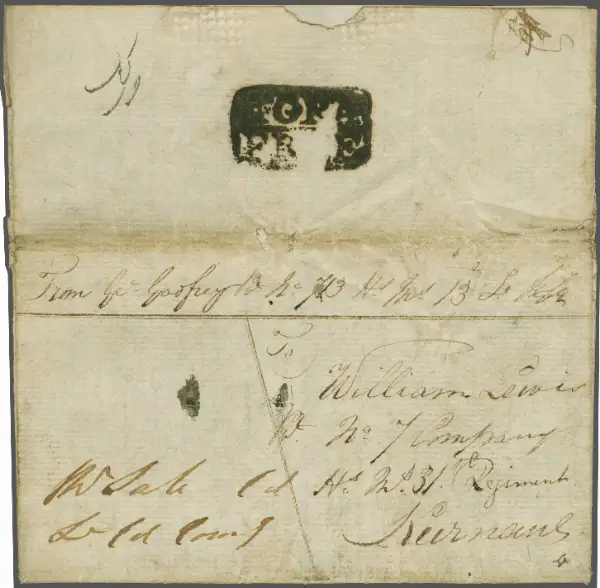 G.P.
FREE
From Geo Godfrey Pt No 713 Hs Ms 13th Lt Infy
To
William Lewis
Pt. No 7 Company
Hs Ms 31st Regiment
Kurnaul
Rt Sale Col
Lt Col Comg